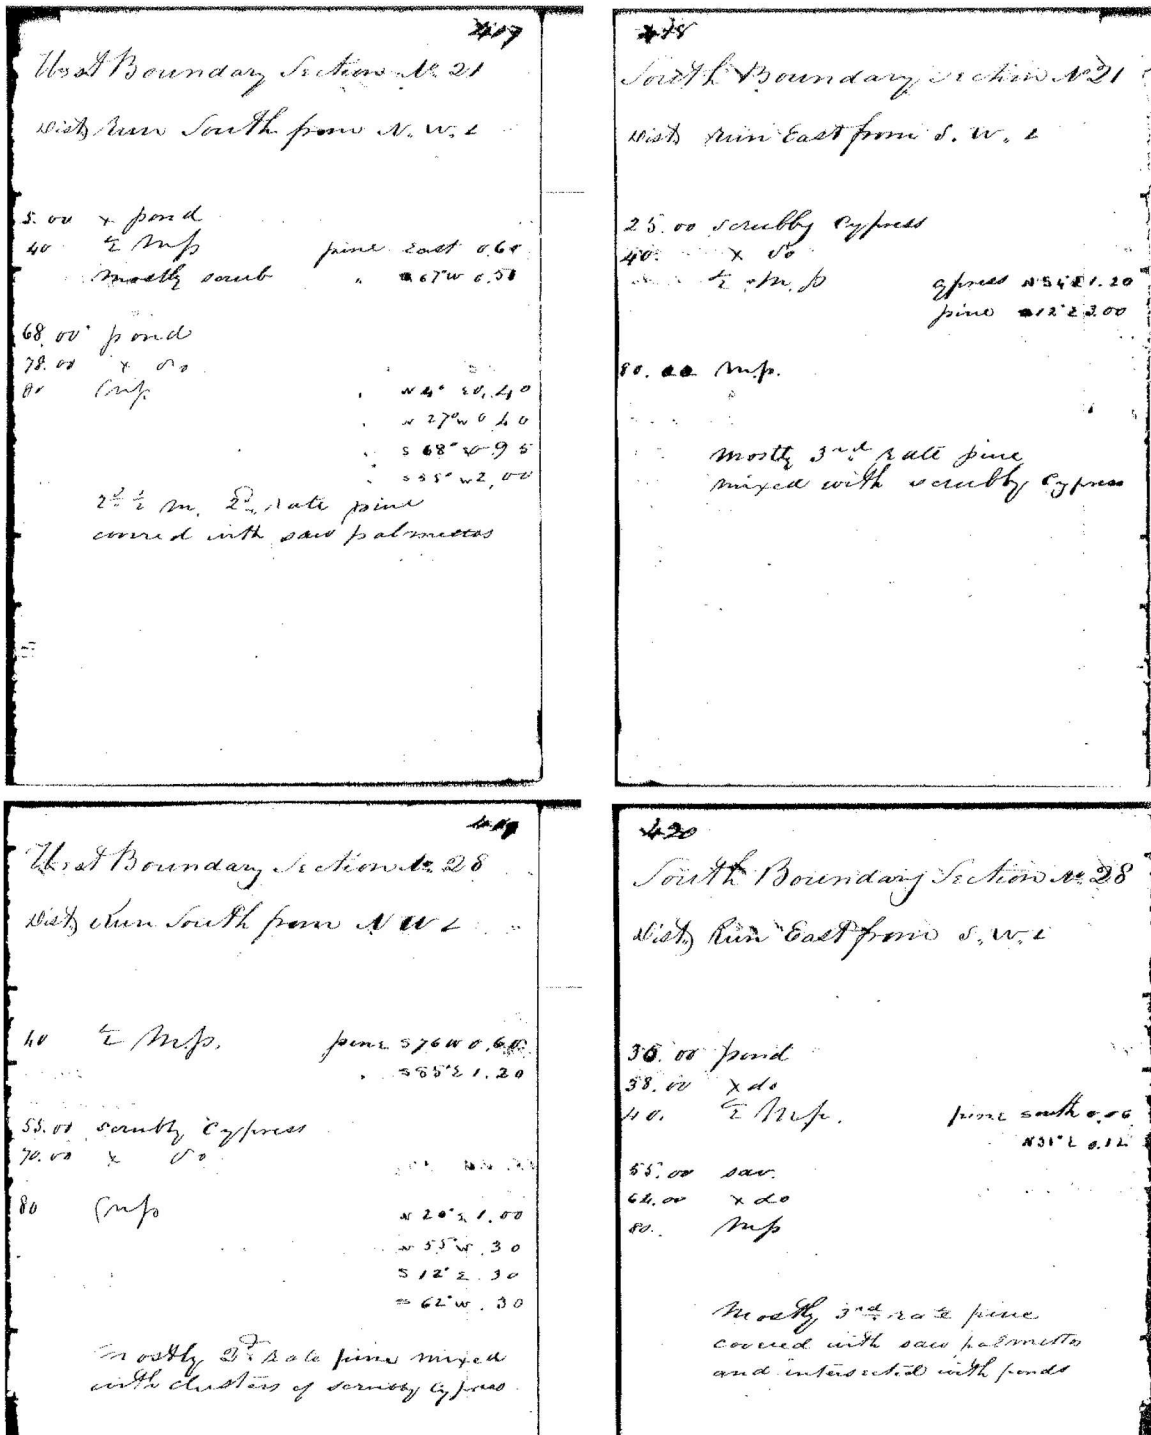 417
West Boundary Section No. 21
Dist. Run South from N. W. C
5.00 x pond
40 ½ M.p pine East 0.60
mostly scrub " 67° W 0.50
68.00 pond
78.00 x do
80 C m.p. " N 4° E 0.40
" N 27° W 0.40
" S 68° E 0.95
" S 55° W 2.00
2nd ½ m. 2nd rate pine
covered with saw palmettos
418
South Boundary Section No 21
Dist. Run East from S. W. C
25.00 scrubby Cypress
40. x do
½ m.p cypress N 54° E 1.20
pine 12° E 3.00
80.00 m.p.
mostly 3rd rate pine
mixed with scrubby Cypress
419
West Boundary Section No. 28
Dist. Run South from N W C
40 ½ M.p. pine S 76 W 0.60
" S 85° E 1.20
55.00 scrubby Cypress
70.00 x do
80 C m.p N 20° E 1.00
N 55° W .30
S 12° E .30
S 62° W .30
Mostly rate pine mixed
with clusters of scrubby Cypress
420
South Boundary Section No. 28
Dist. Run East from S. W. C
.00 pond
38.00 x do
40. ½ M.p. pine south 0.06
N 31° E 0.12
55.00 sav.
64.00 x do
80. M.p
Mostly 3rd rate pine
covered with saw palmettos
and intersected with ponds